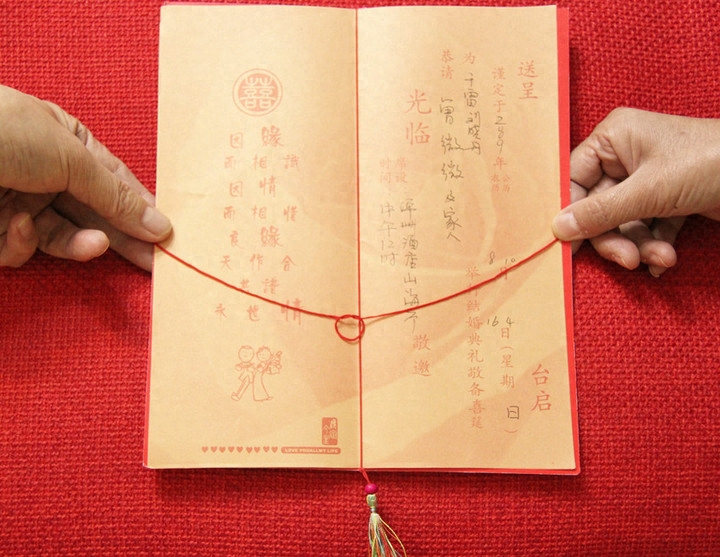 囍
因 緣
而 相 識
因 情
而 相
緣
天 作 合
共 譜
永 世 情
LOVE YOU ALL MY LIFE
送呈 台启
谨定于2009年 公历 10月4日 农历 8月16日(星期日)
为 于雷 刘晓丹 举行结婚典礼敬备喜筵
恭请 曾微微及家人
光临 敬邀
席设 酒店山海
时间 中午12时